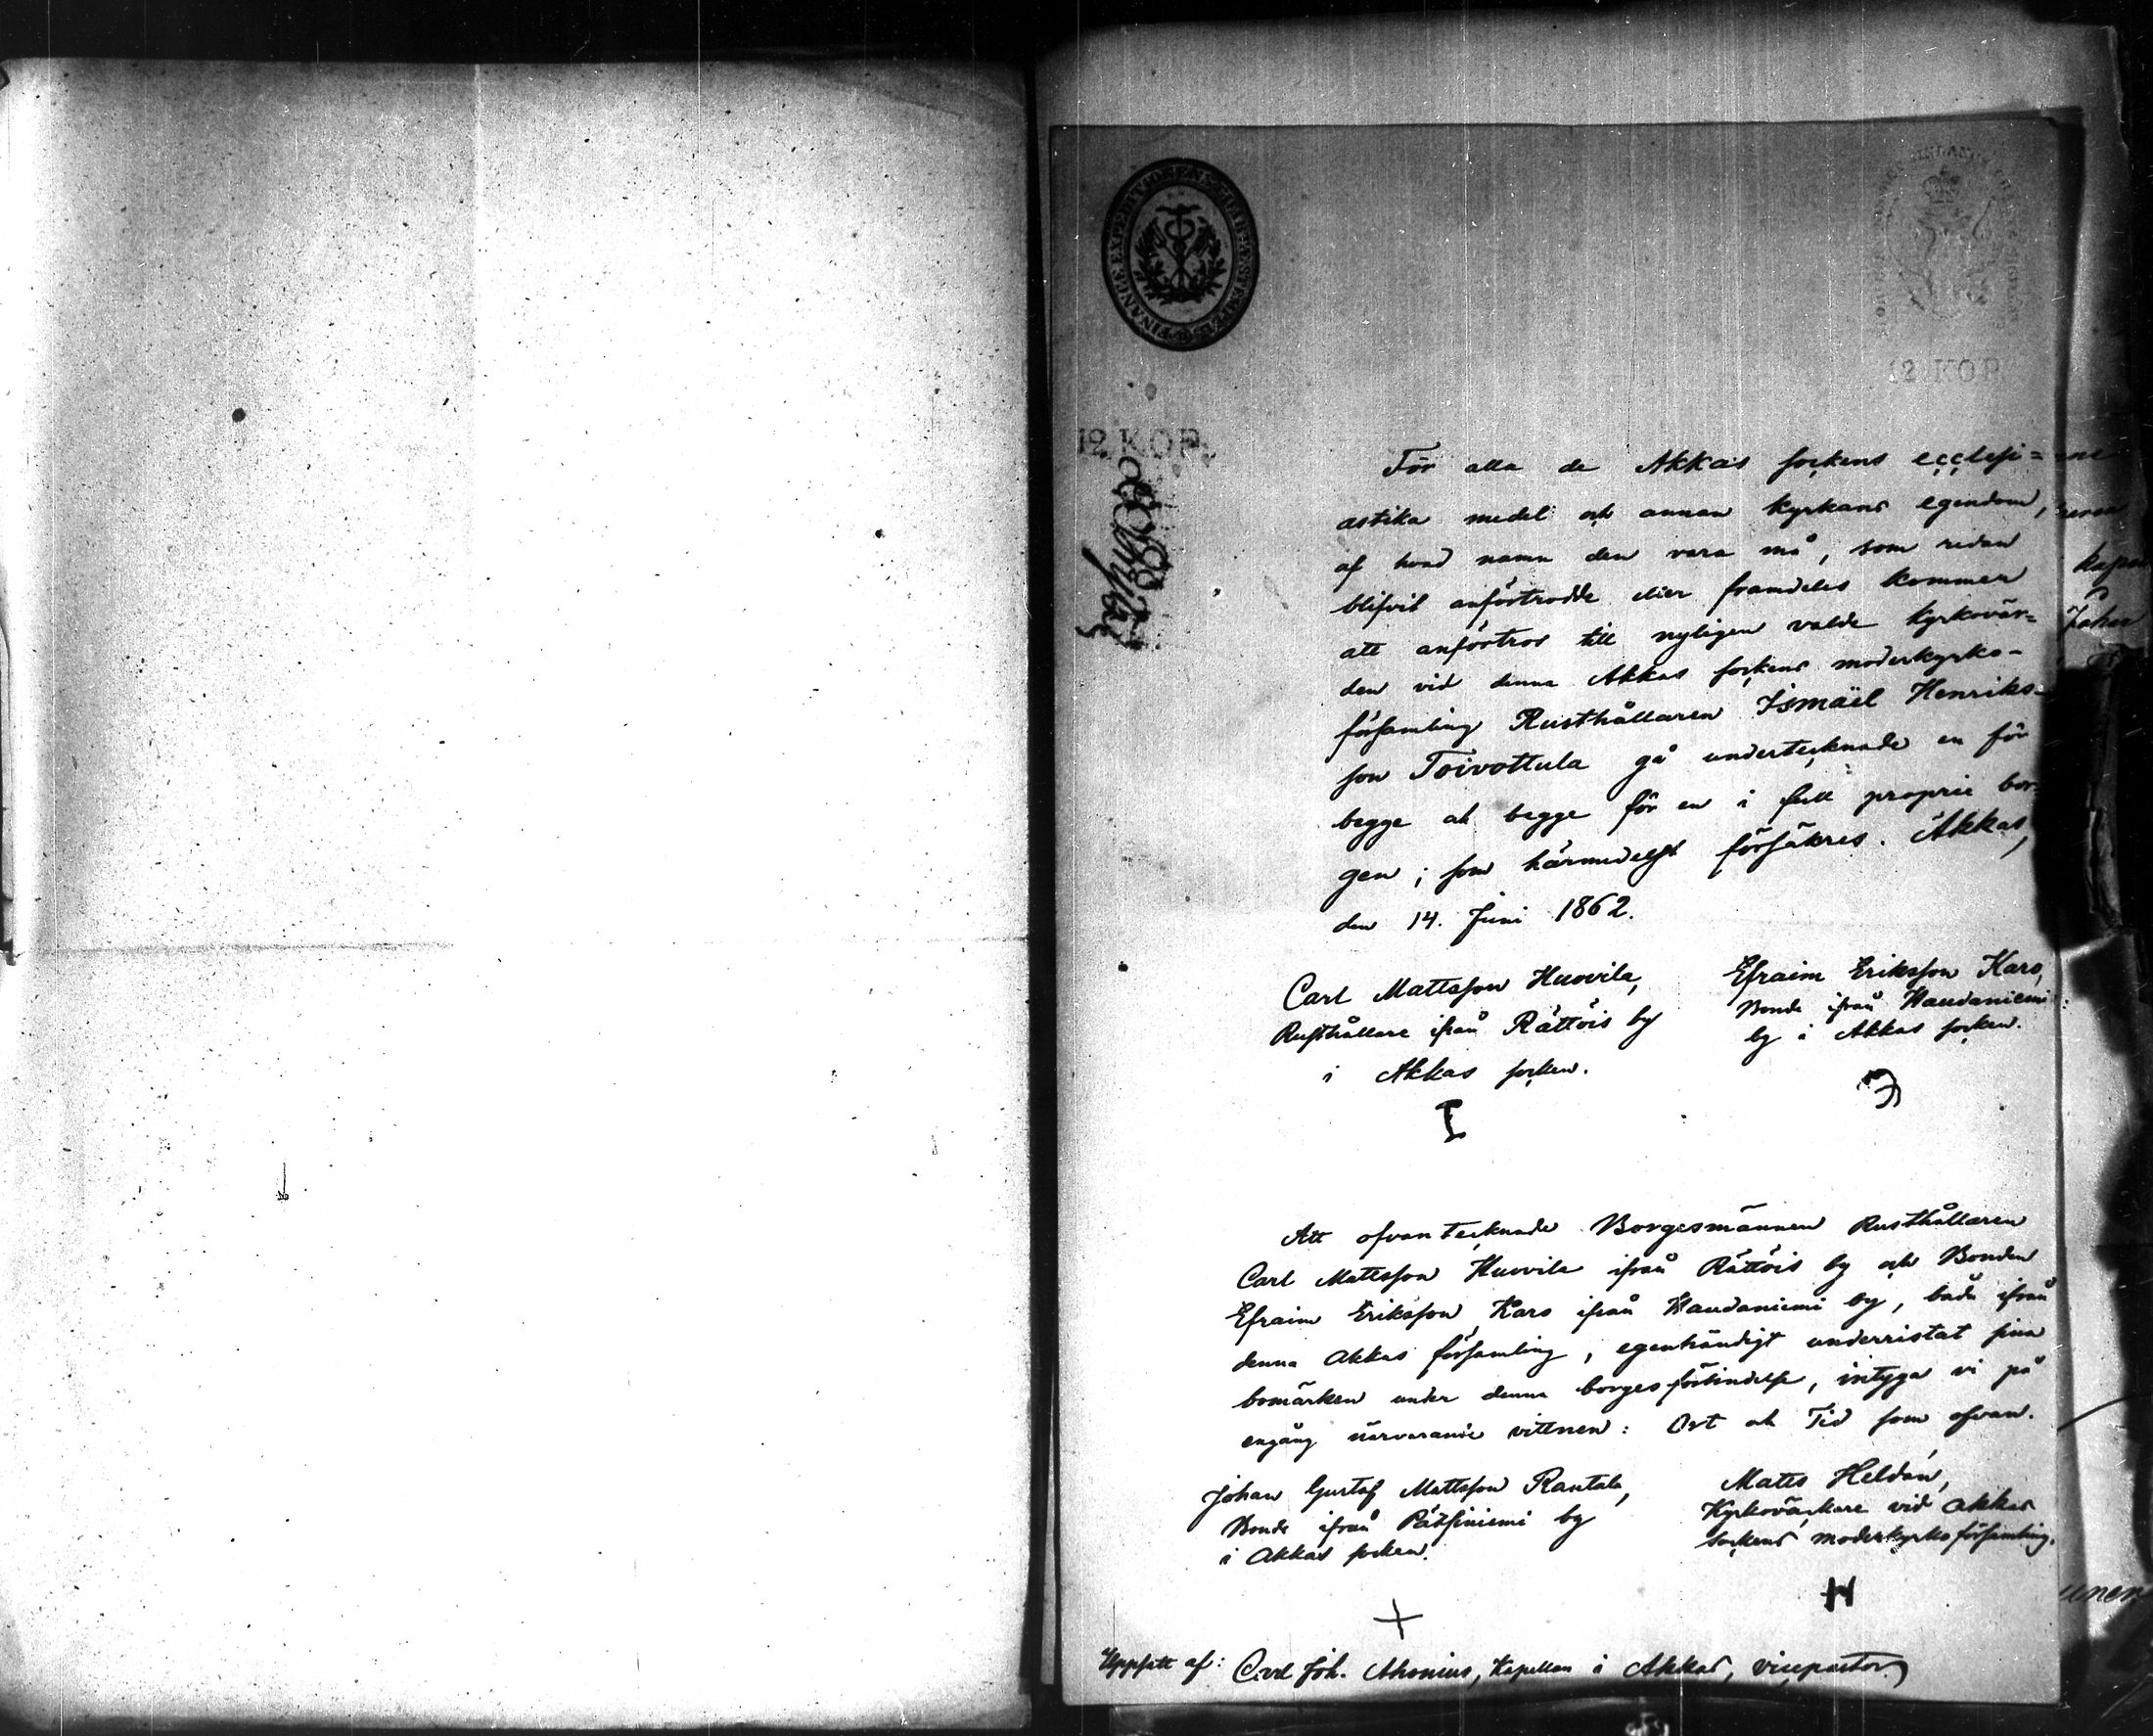 12 KOP.
12 KOP
För alla de Akkas sockens ecclesi=
astika medel och annan kyrkans egendom,
af hvad namn den vara må, som redan
blifvit anförtrodde eller framdeles kommer
att anförtros till nyligen valde kyrkovär=
den vid denna Akkas sockens moderkyrko-
församling Rusthållaren Ismaël Henriks-
son Toivottula gå undertecknade en för
begge och begge för en i full proprie bor=
gen; som härmedelst försäkres. Akkas,
den 14. Juni 1862.
Carl Mattsson Huovila,
Rusthållare ifrån Rättöis by
i Akkas socken.
Efraim Eriksson Karo,
Bonde ifrån Haudaniemi
by i Akkas socken.
Att ofvantecknade Borgesmännen Rusthållaren
Carl Mattsson Huovila ifrån Rättöis by och Bonden
Efraim Eriksson Karo ifrån Haudaniemi by, båda ifrån
denna Akkas församling, egenhändigt underristat sina
bomärken under denna borgesförbindelse, intyga vi på
engång närvarande vittnen: Ort och Tid som ofvan.
Johan Gustaf Mattsson Rantala,
Bonde ifrån Pätsiniemi by
i Akkas socken.
Matts Heldán,
Kyrkoväckare vid Akkas
sockens moderkyrkoförsamling.
Uppsatt af: Carl Joh. Ahonius, Kapellan i Akkas, vicepastor